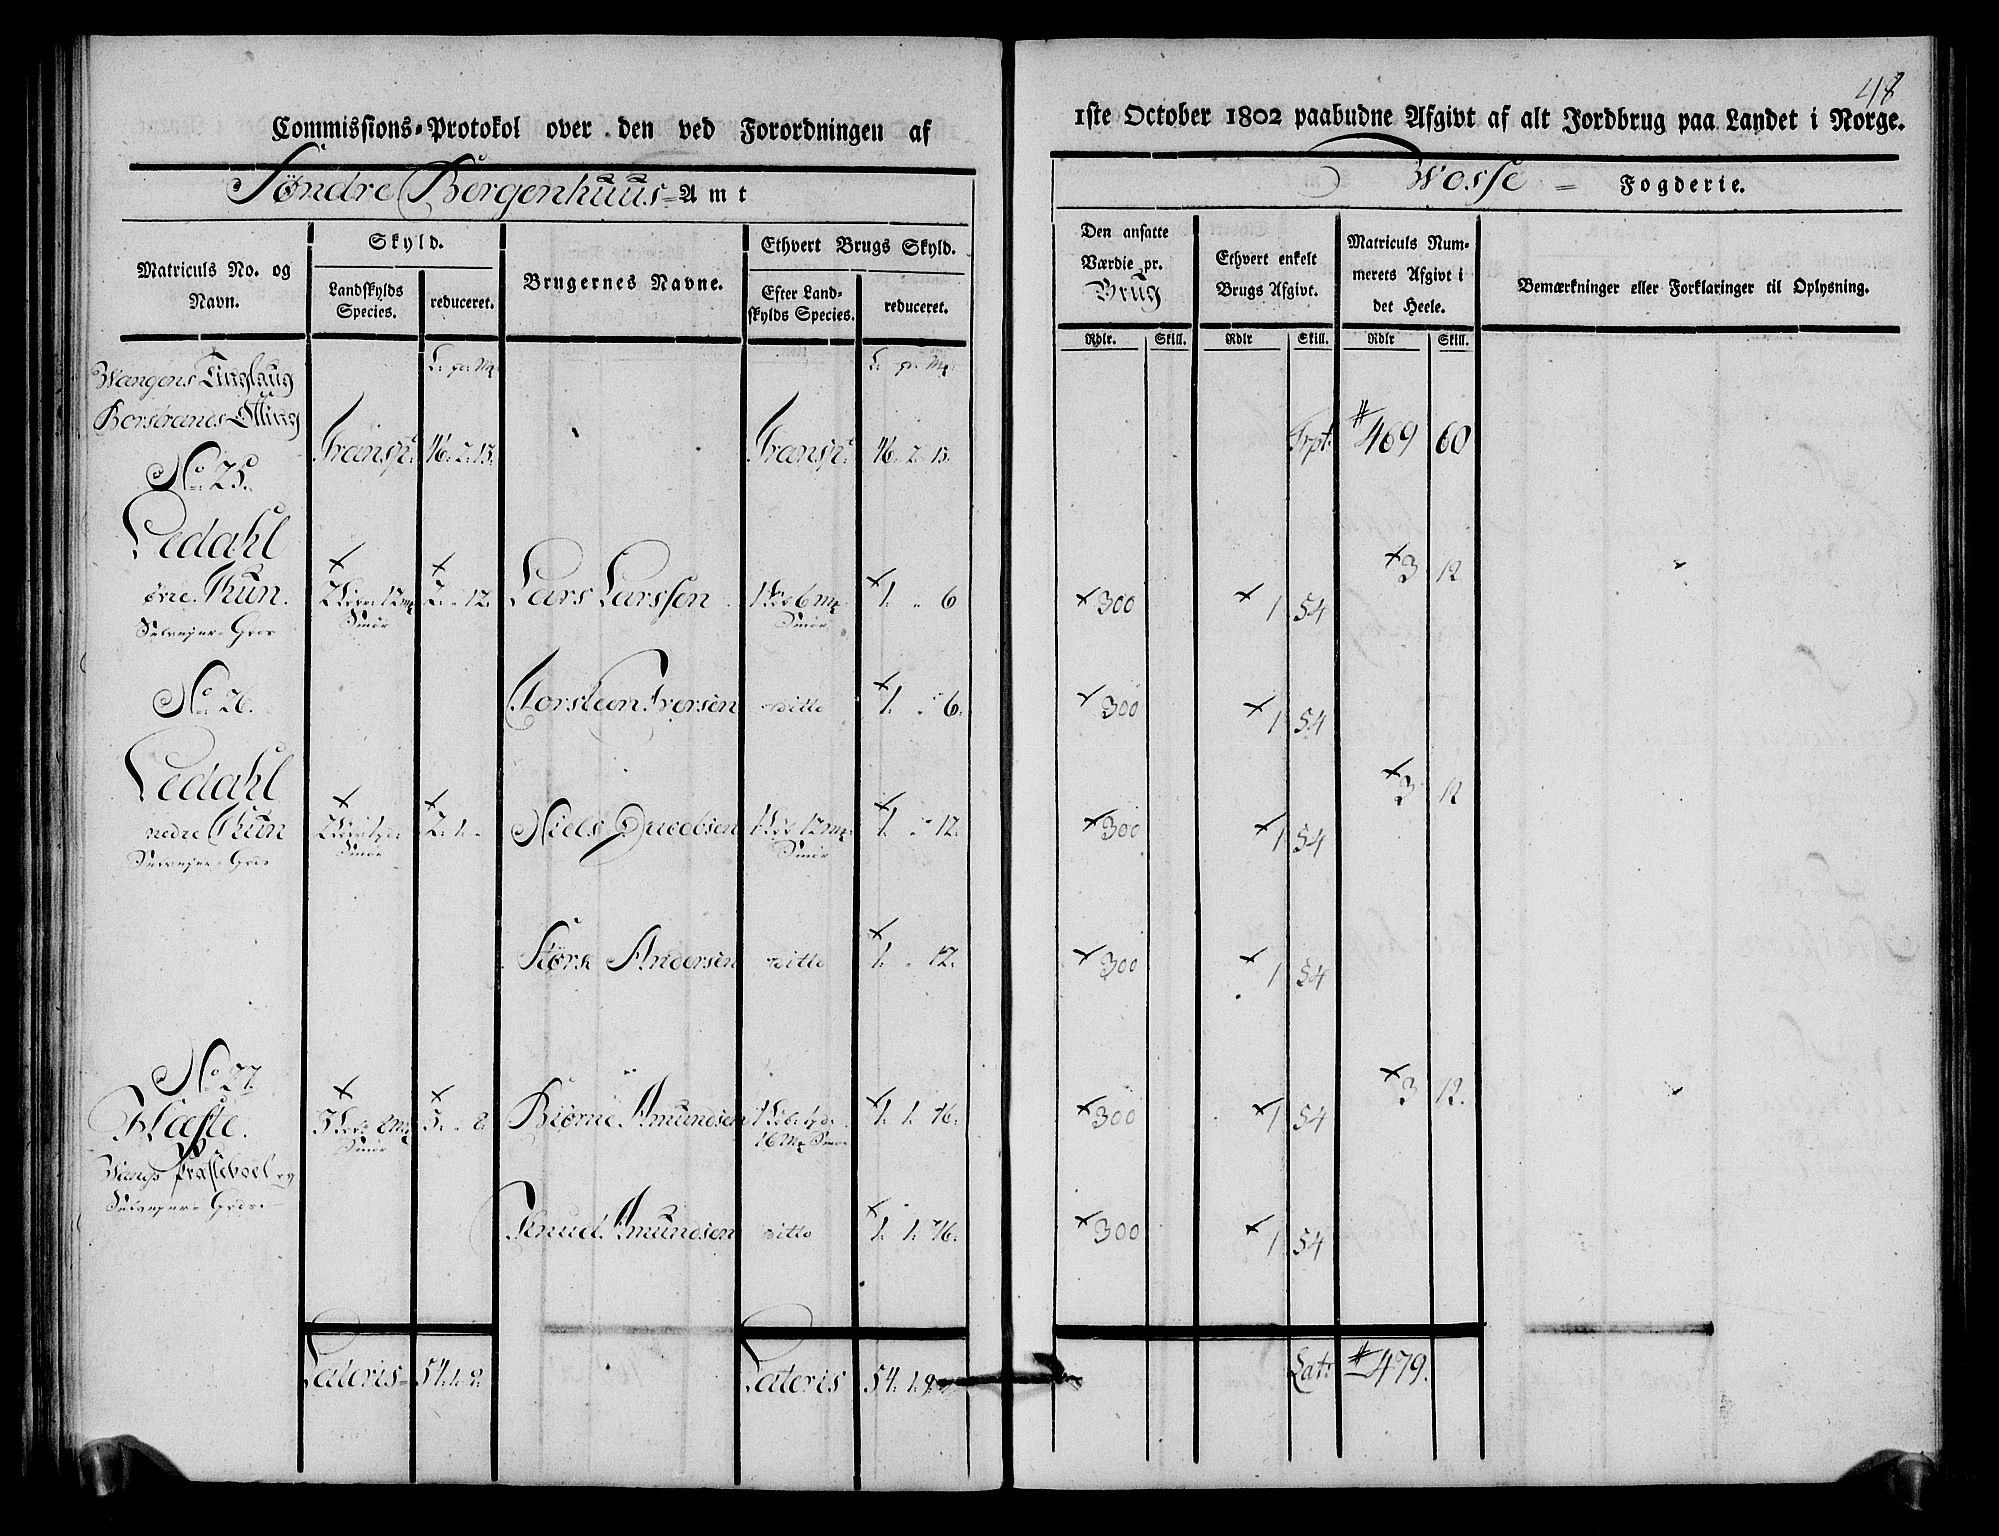 48
Commissions-Protokol over den ved Forordningen af
1ste October 1802 paabudne Afgivt af alt Jordbrug paa Landet i Norge.
Søndre Bergenhuus-Amt
Wosse = Fogderie.
Matriculs No. og Navn.
Skyld.
Landskylds Species.
reduceret.
Brugernes Navne.
Ethvert Brugs Skyld.
Efter Landskylds Species.
reduceret.
Den ansatte Værdie pr. Brug
Ethvert enkelt Brugs Afgivt.
Matriculs Nummerets Afgivt i det Heele.
Bemærkninger eller Forklaringer til Oplysning.
Rdlr. Skill. Rdlr Skill. Rdlr Skill.
Wangens Tinglaug
Borstrands Otting
Transpt. 46. 2. 13. Transpt. 46. 2. 13. Trpt. 469 60
No 25.
Ledahl
øvre Thun.
2. - 12. Lars Larssen 1. - 6 300 1 54 3 12
Smør Smør
Selveyer Gods
No 26. Torsteen Iversen ditto 1. - 6. 300 1 54
Ledahl
nedre Thun
2. 1. - Niels Jacobsen 1. - 12. 300 1 54 3 12
Smør Smør
Selveyer Gods
Størk Andersen ditto 1. - 12. 300 1 54
No 27.
Fleste.
3. - 8. Biørne Amundsen 1. 1. 16. 300 1 54 3 12.
Smør 16 Mk Smør
Wangs Præsteboel og
Selveyer Gods.
Knud Amundsen ditto 1. 1. 16. 300 1 54
Lateris 54. 1. 9. Lateris 54. 1. 9. Lat: 479.